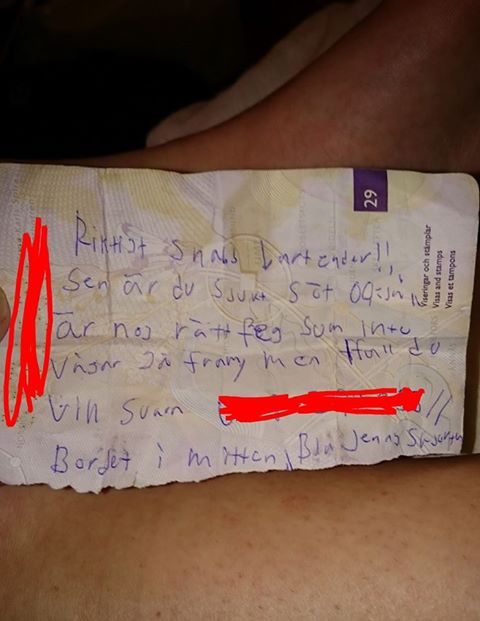 Riktigt snabb bartender!!
Sen är du sjukt söt också
är nog rätt feg som inte
vågar gå fram men ifall du
vill svara
Bordet i mitten, Blå Jeans
29
Viseringar och stämplar
Visas and stamps
Visas et tampons